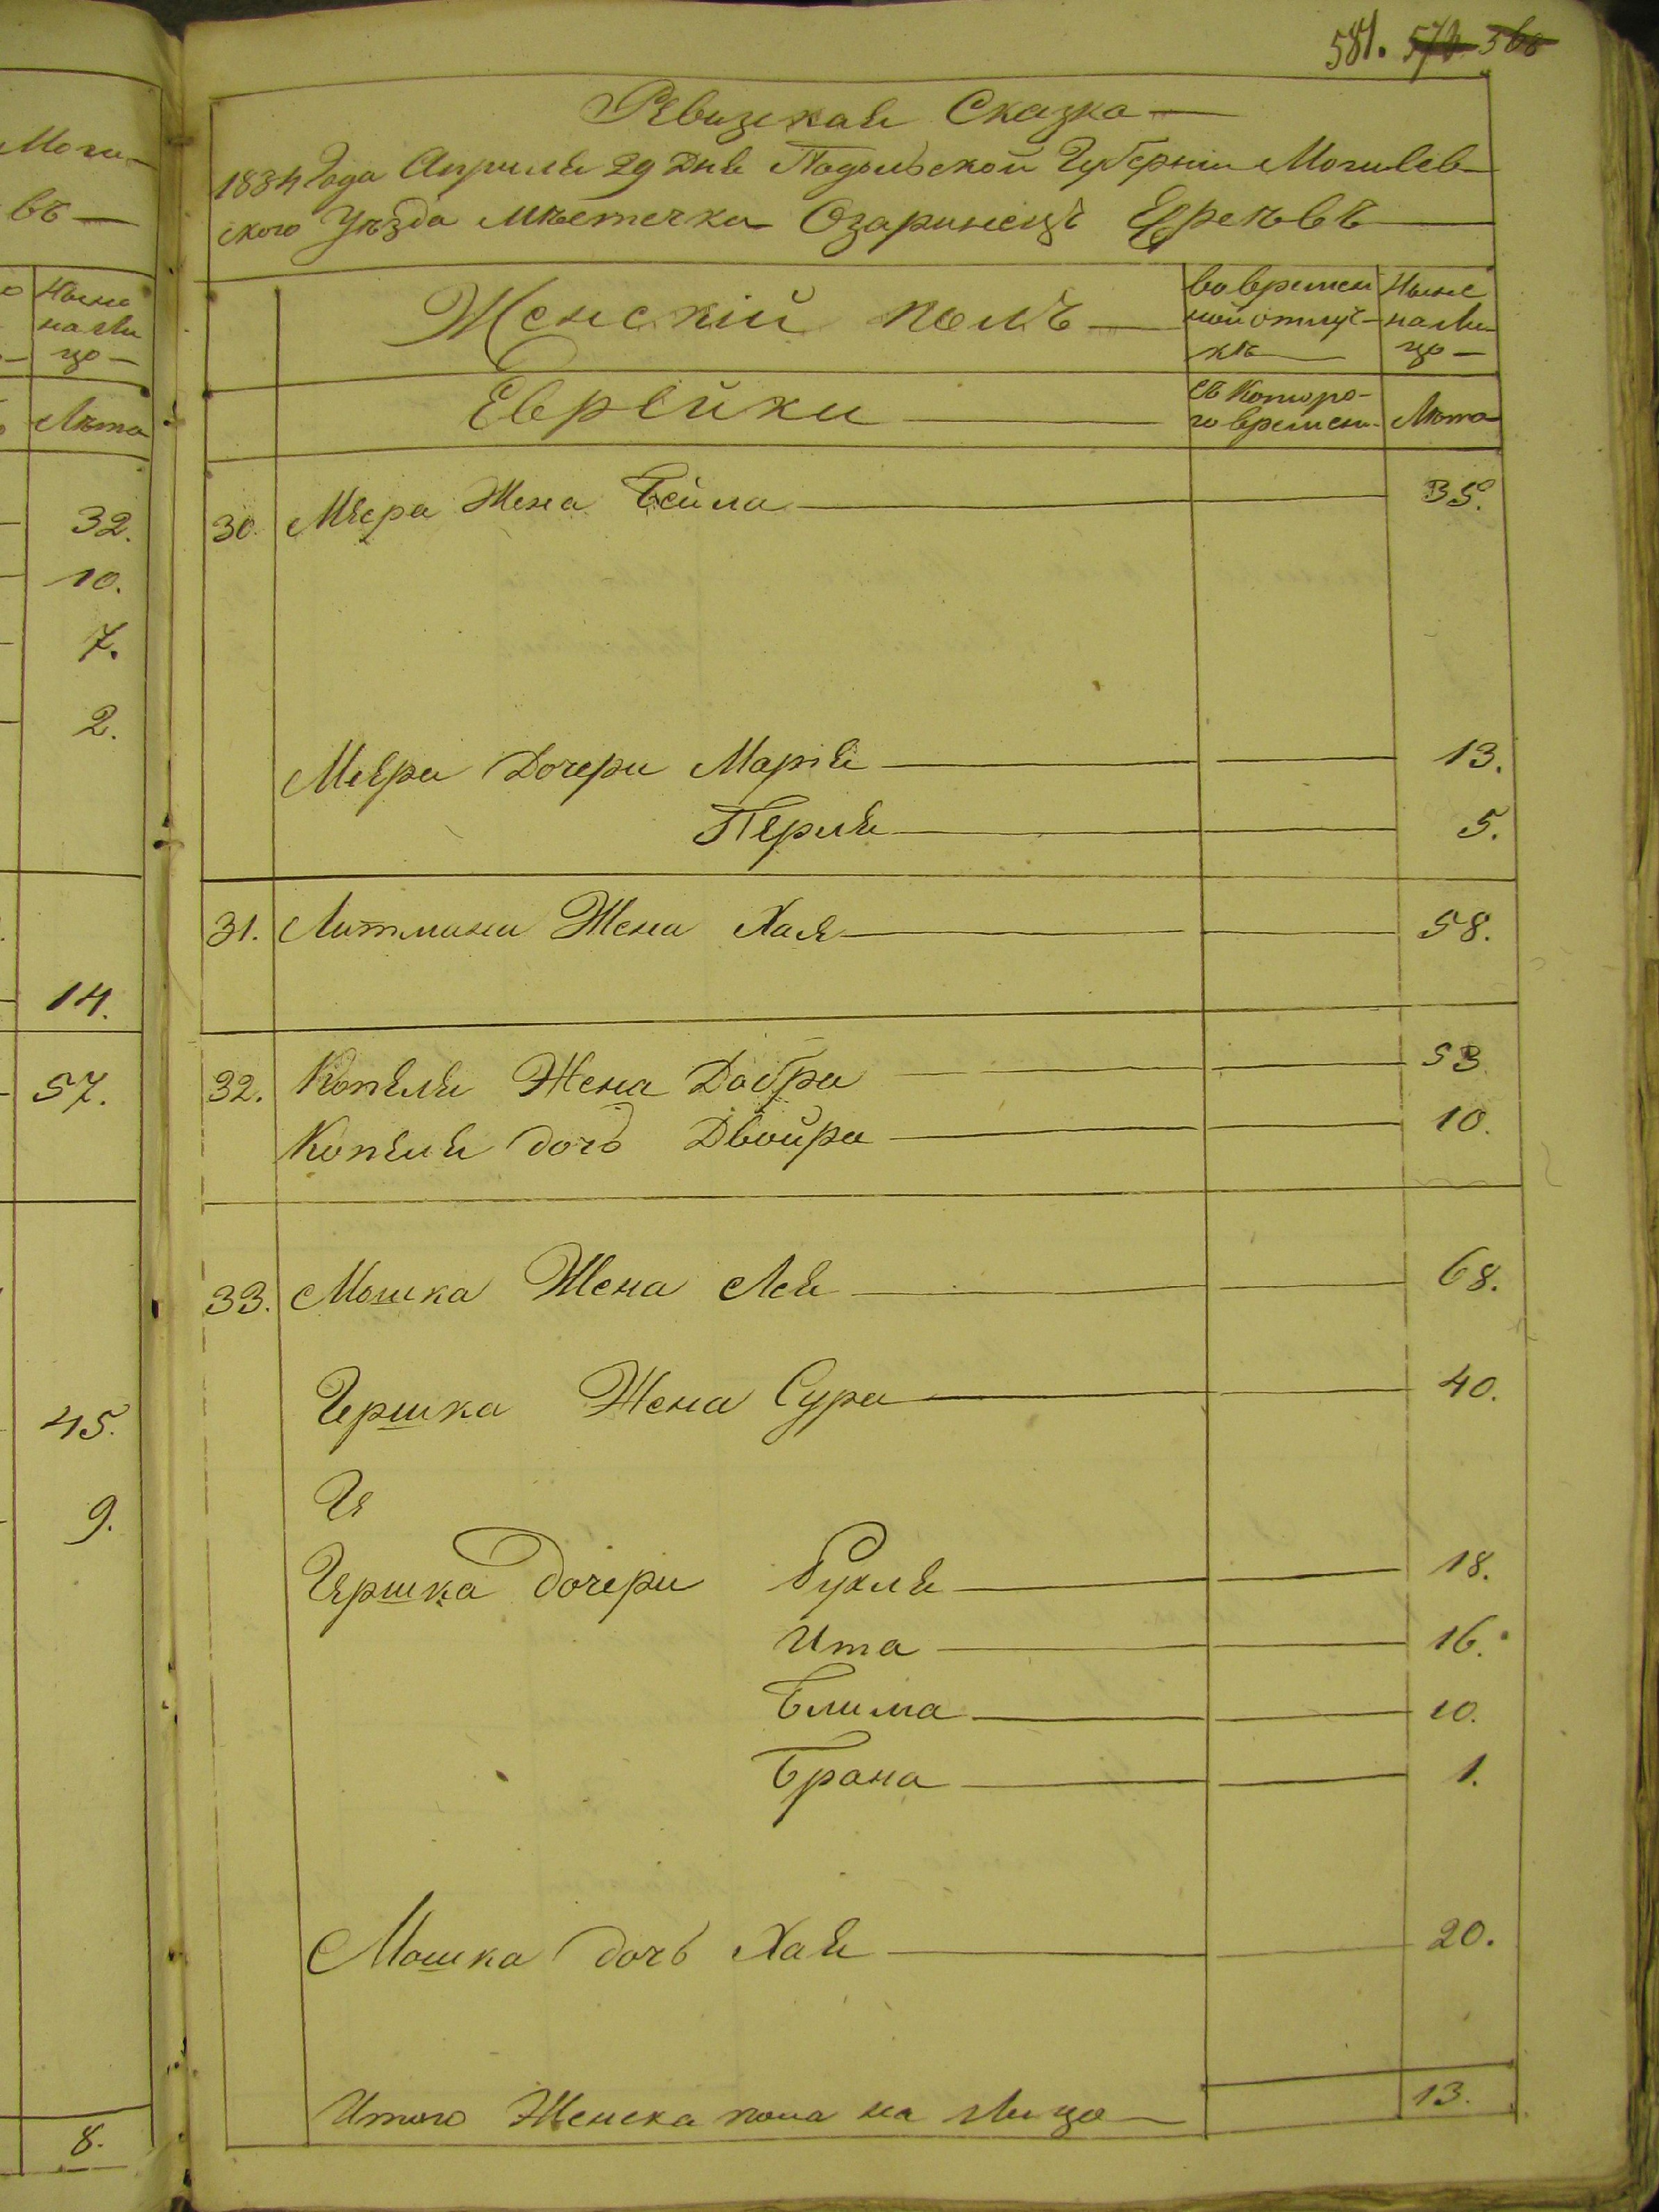 581. 572 560
Моги
въ
Ныне
на ли
цо
Лѣта
32.
10.
7.
2.
14.
57.
45.
9.
8.
Ревизкая Сказка
1834 Года Апреля 29 Дня Подольской Губернии Могилев
ского Уѣзда мѣстечка Озаринецъ Евреевъ
Женский полъ
во времен
ной отлуч
кѣ
Ныне
на ли
цо
Еврейки
съ Которо-
го времени
Лѣта
30. Меера Жена Бейла 35.
Меера Дочери Мария 13.
Перля 5.
31. Литмана Жена Хая 58.
32. Копеля Жена Добра 53.
Копеля дочь Двойра 10.
33. Мошка Жена Лея 68.
Гершка Жена Сура 40.
Ге
Гершка дочери Рухля 18.
Ита 16.
Блима 10.
Брана 1.
Мошка дочь Хая 20.
Итого Женска пола на лицо 13.